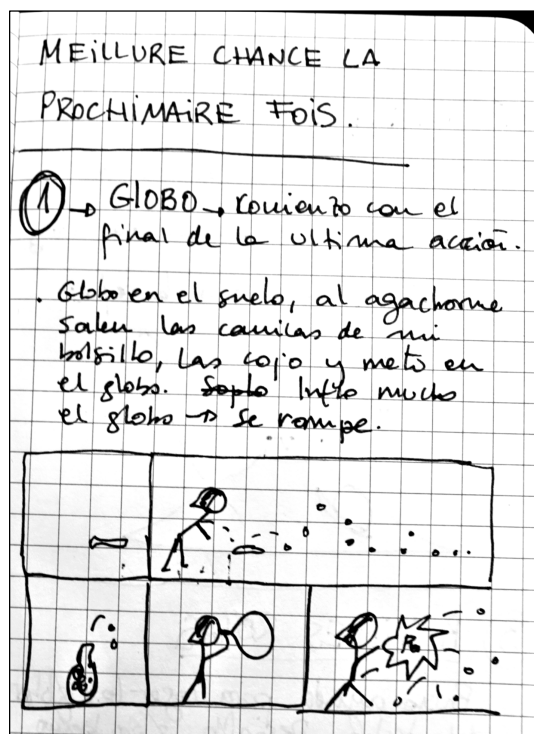 MEiLLURE CHANCE LA
PROCHiMAiRE FOiS.
1 → GlOBO → Comienzo con el
final de la ultima acción.
. Globo en el suelo, al agacharme
salen las canicas de mi
bolsillo, las cojo y meto en
el globo. Soplo Inflo mucho
el globo → se rompe.